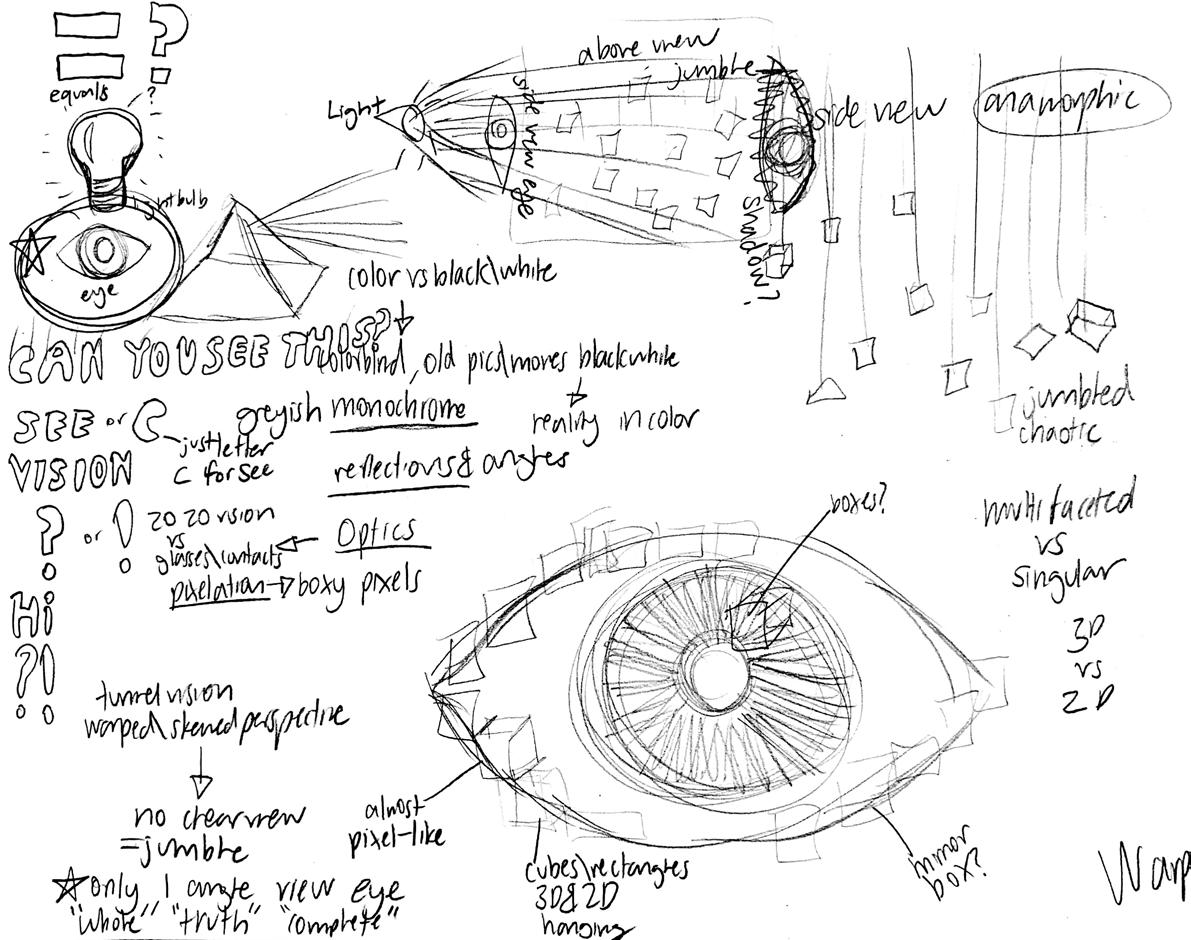 ?
equals
?
lightbulb
eye
Light
side view eye
above view
jumble
side view
shadow?
anamorphic
jumbled
chaotic
color vs black\white
CAN YOU SEE THIS?
colorblind, old pics\movies black white
reality in color
greyish monochrome
SEE or C
just letter
C for see
VISION
reflections & angles
? or !
20 20 vision
vs
glasses\contacts
Optics
pixelation → boxy pixels
Hi
?!
tunnel vision
warped\skewed perspective
no clear view
=jumble
only 1 angle view eye
"whole" "truth" "complete"
boxes?
almost
pixel-like
cubes\rectangles
3D & 2D
hanging
mirror
box?
multifaceted
vs
singular
3D
vs
2D
Warp